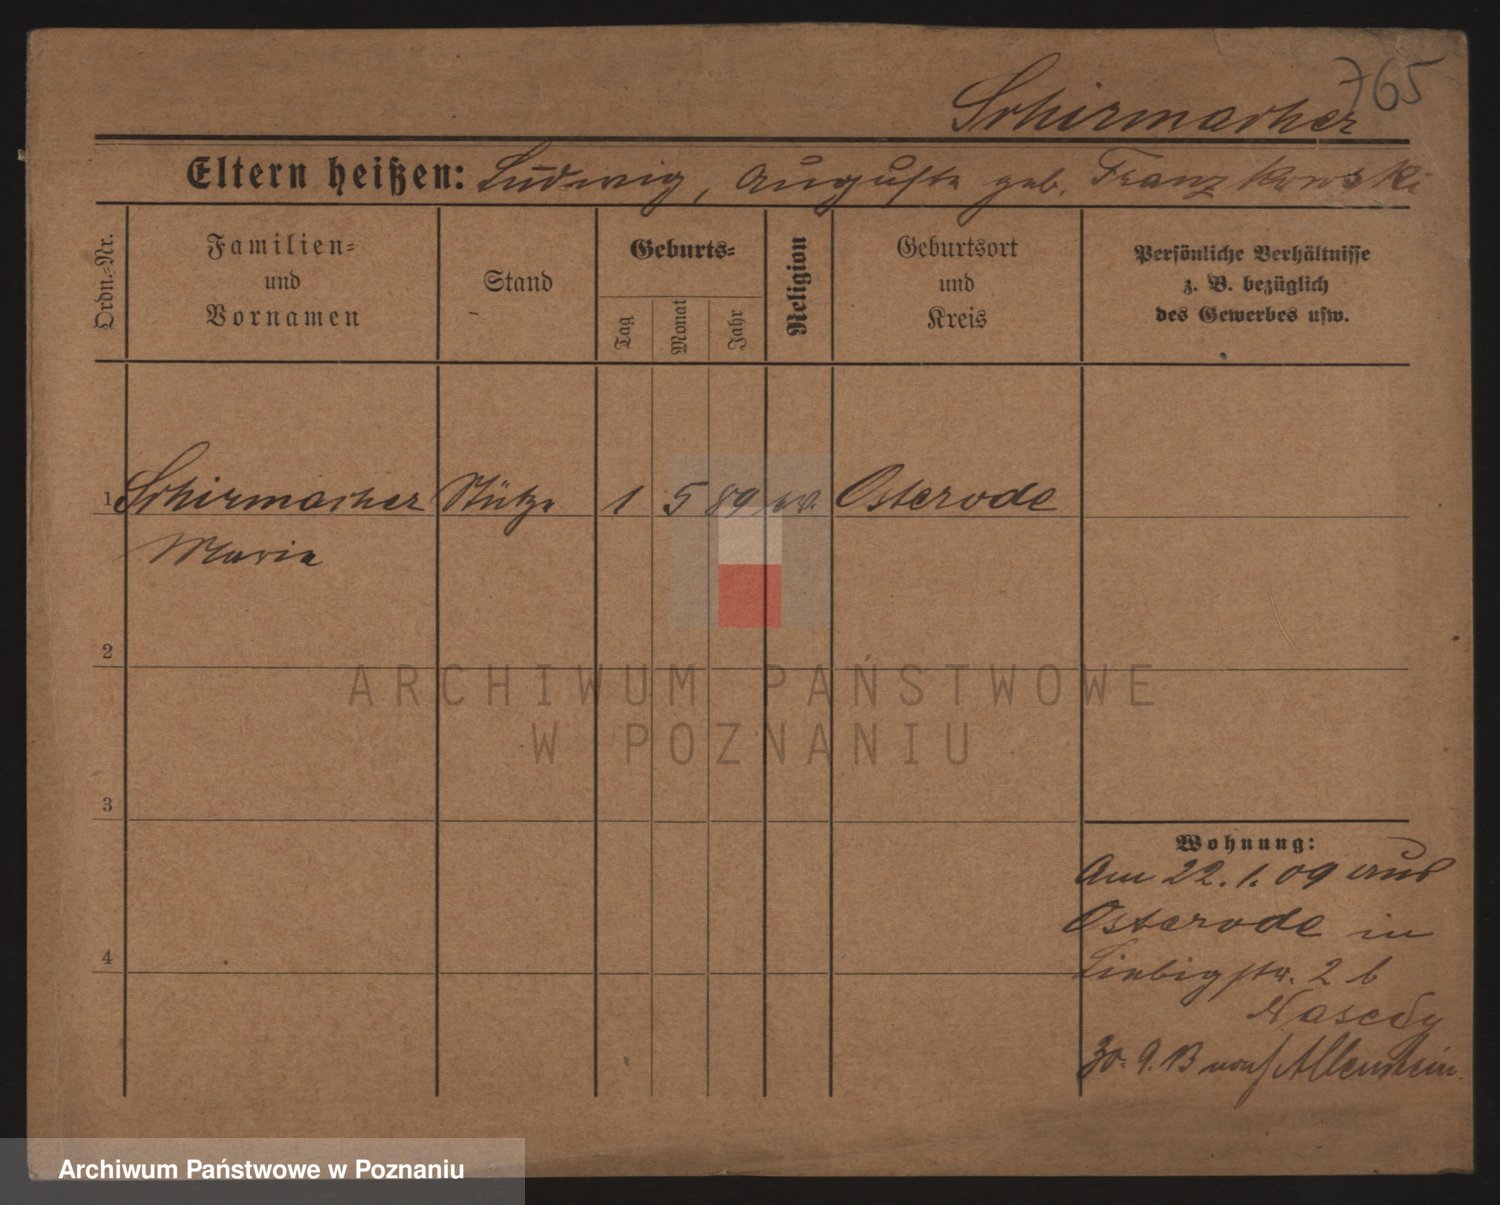 765
Schirmacher
Eltern heißen: Ludwig, Auguste geb. Franzkowski
Ordn.-Nr.
Familien-
und
Vornamen
Stand
Geburts-
Tag
Monat
Jahr
Religion
Geburtsort
und
Kreis
Persönliche Verhältnisse
z. B. bezüglich
des Gewerbes usw.
1 Schirmacher Stütze 1 5 89 ev. Osterode
Maria
2
3
4
Wohnung:
Am 22. 1. 09 aus
Osterode in
Liebigstr. 2 b
30. 9. 13 nach Allenstein
ARCHIWUM PAŃSTWOWE
W POZNANIU
Archiwum Państwowe w Poznaniu